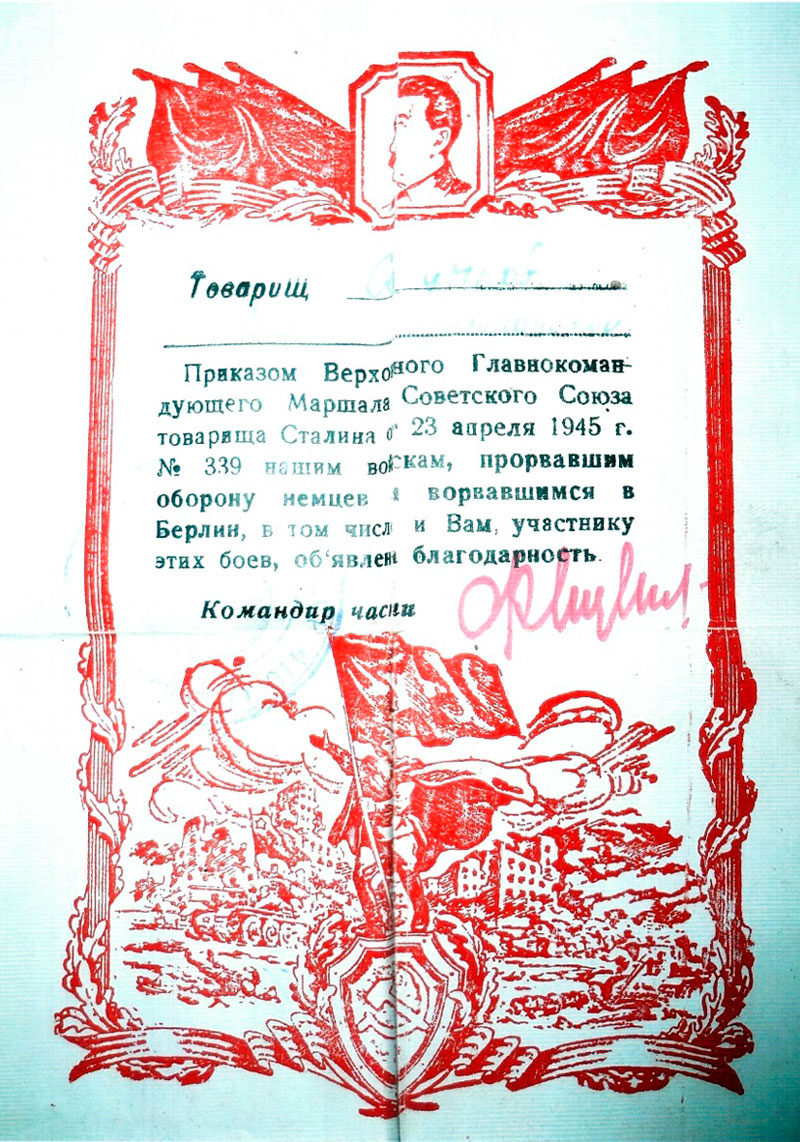 Товарищ
Приказом Верховного Главнокоман-
дующего Маршала Советского Союза
товарища Сталина от 23 апреля 1945 г.
№ 339 нашим войскам, прорвавшим
оборону немцев и ворвавшимся в
Берлин, в том числе и Вам, участнику
этих боев, об'явлена благодарность.
Командир части